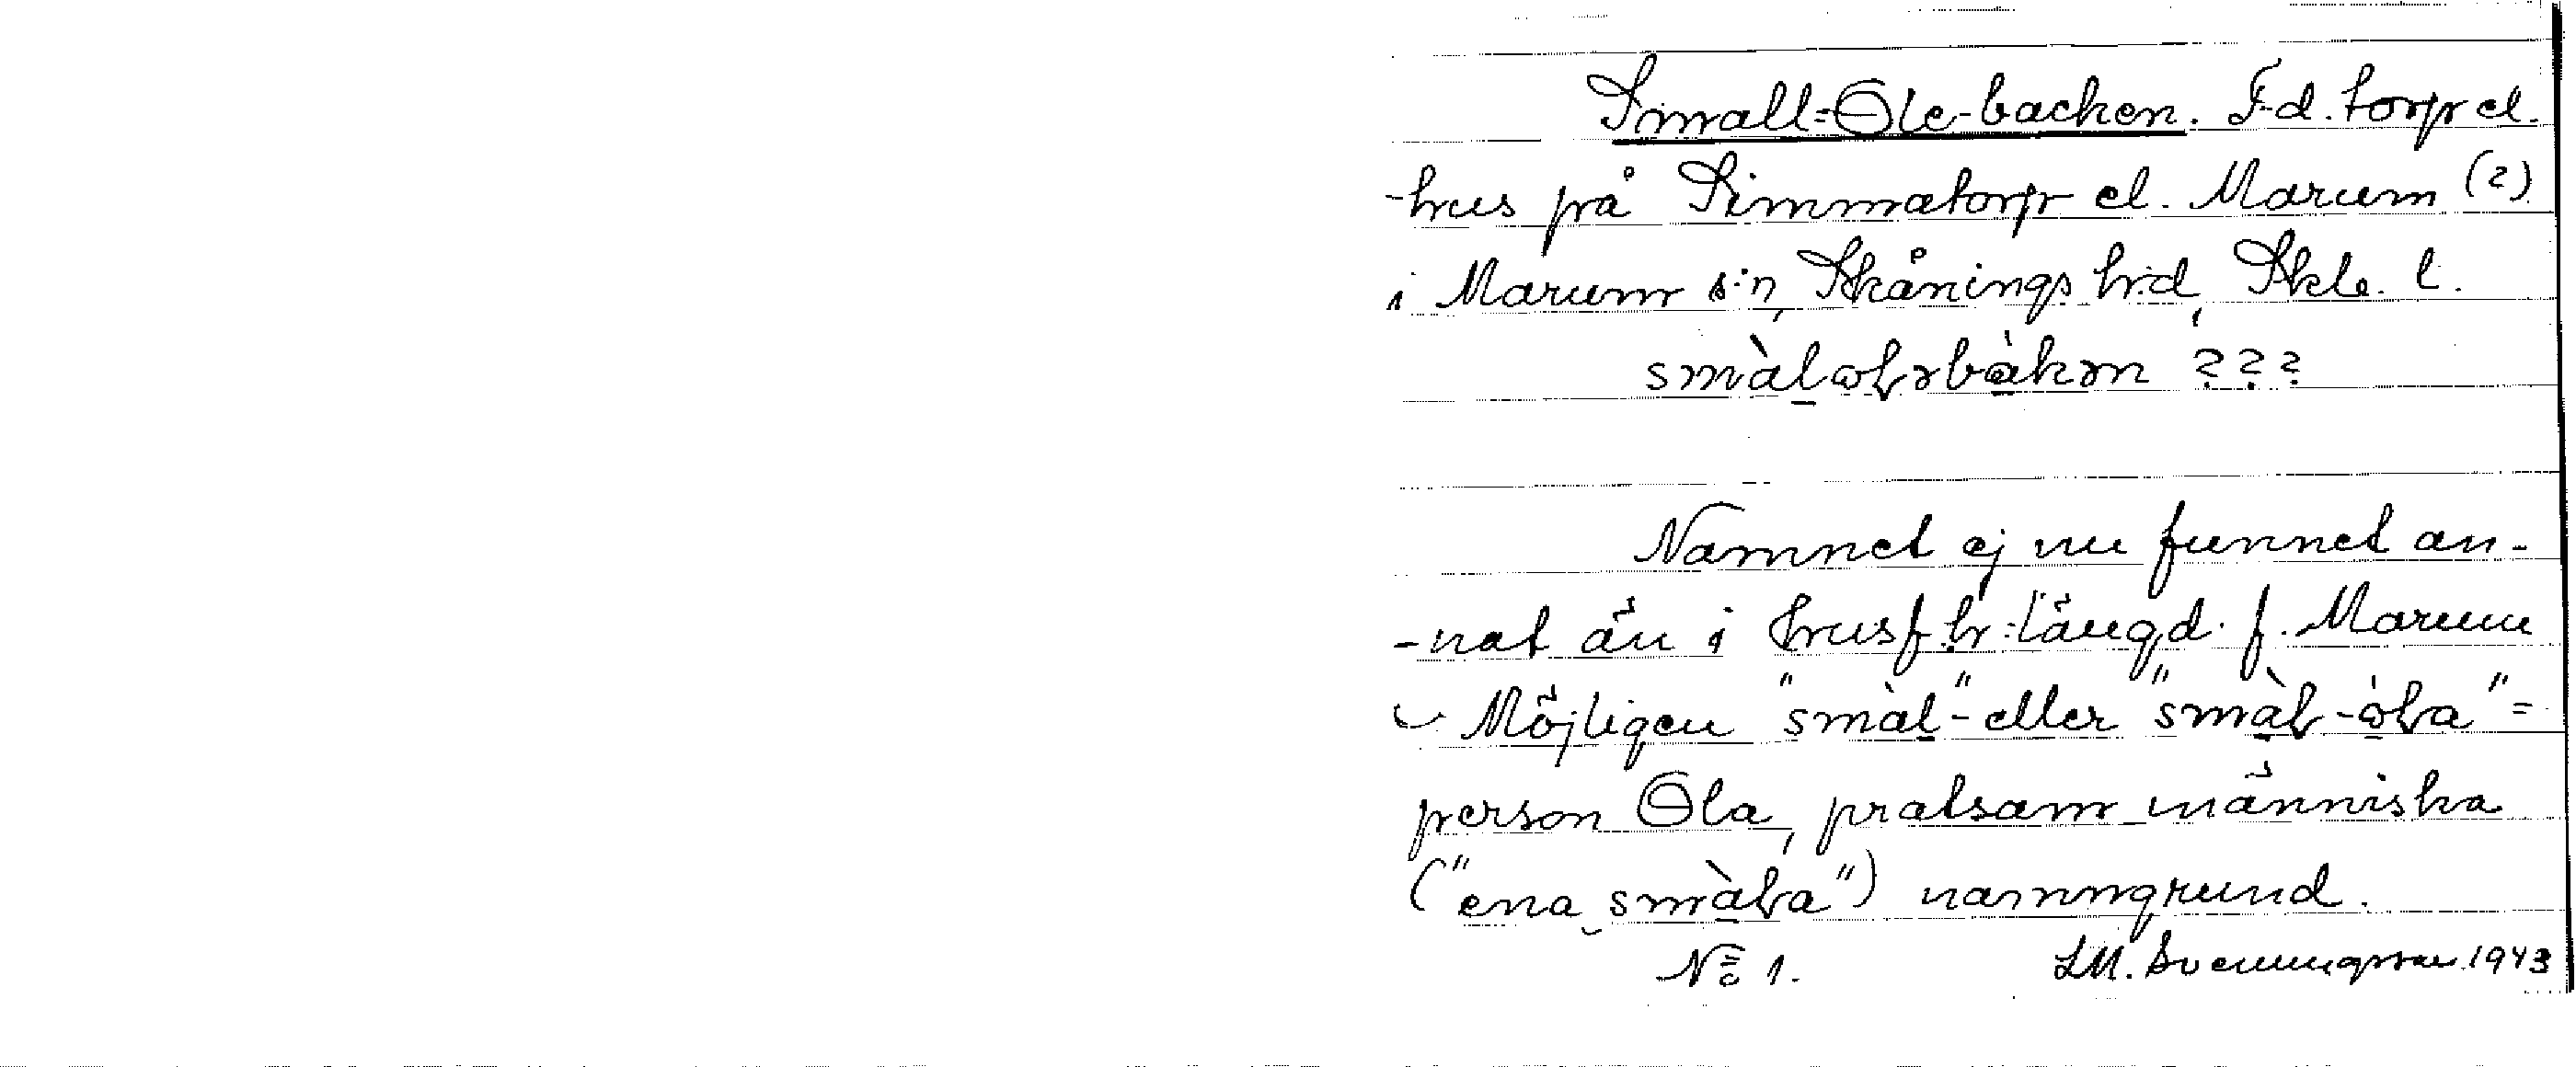 Small-Ole-backen. F.d. torp el.
-hus på Simmatorp el. Marum (?)
i Marum s:n, Skånings h:d, Skb. l.
smàlaɷlɘbàkɘn ???
Namnet ej nu funnet an-
-nat än i husf.h:längd. f. Marum
Möjligen "smàl"- eller "smàl-òla" =
person Ola, pratsam människa
("ena smàla") namngrund.
No 1. S.M. Svenungsson 1943